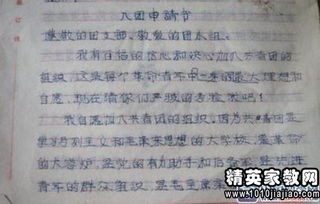 入团申請书
敬的团支部、敬爱的团小组:
我有百倍的信心和决心加入共青团的
组织,这是每个革命青年的最大理想和
自愿,现在请你们严肃的考验我吧!
我自愿加入共青团的组织,因为共青团是
学习列主义和毛泽东思想的大学校,是革命
的大熔炉,是党的有力助手和后备军,是先进
青年的群众组织,是毛主席
精英家教网
www.1010jiajiao.com